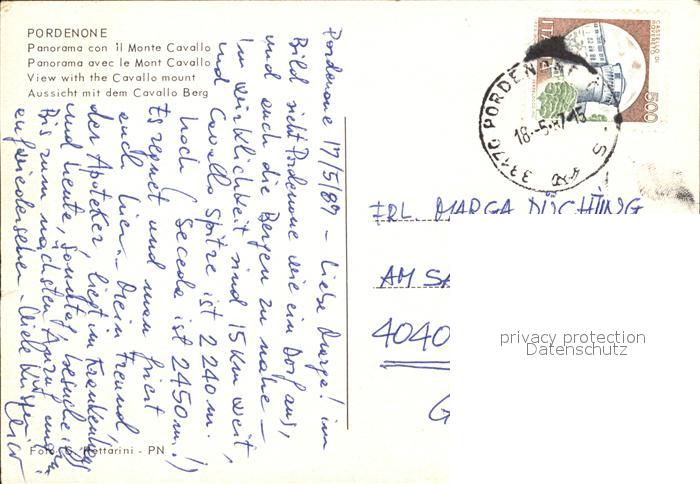 PORDENONE
Panorama con il Monte Cavallo
Panorama avec le Mont Cavallo
View with the Cavallo mount
Aussicht mit dem Cavallo Berg
Pordenone 17/5/87 – Liebe Marga! im
Bild sieht Pordenone wie ein Dorf aus,
und auch die Bergen zu nahe –
In wirklichkeit sind 15 Km weit,
und Cavallo spitze ist 2240 m.
hoch (Seceda ist 2450 m.!)
Es regnet und man friert
auch hier. – Mein Freund,
der Apoteker, liegt im Krankenhaus
und heute, Sonntag, besuche
Bis zum nächsten Anruf und
aufwiedersehen – Viele Küsse
Foto: Mettarini - PN
ITALIA
CASTELLO DI
500
33170 PORDENONE
18.-5.87-15
FRL. MARGA NÜCHTING
AM SA
4040
G
privacy protection
Datenschutz